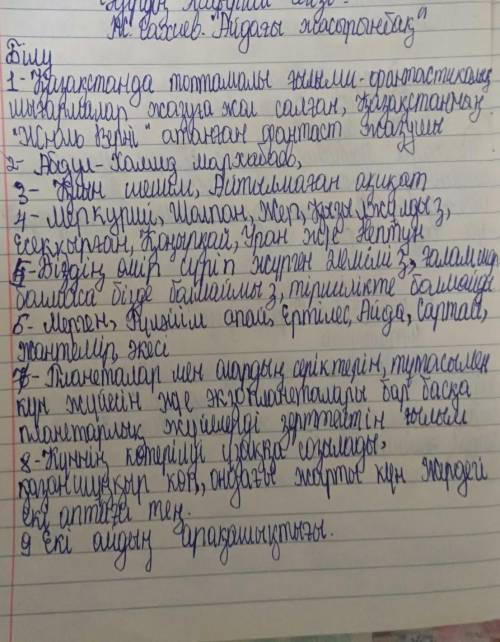 Ж. Сахиев. "Айдағы жасырынбақ"
Білу
1- Қазақстанда топтамалы ғылыми-фантастикалық
шығармалар жазуға жол салған, Қазақстанның
"Жюль Верні" атанған фантаст жазушы
2- Абдул-Хамид Мархабаев,
3- Қиын шешім, Айтылмаған ақиқат
4- Меркурий, Шолпан, Жер, Қызыл жұлдыз,
Есекқырған, Қоңырқай, Уран және Нептун
5- Біздің өмір сүріп жүрген мекеніміз, ғалам
болмаса бізде болмаймыз, тіршілікте болмайды
6- Мерген, апай, Ертілес, Айда, Сартай,
Жантемір, әкесі
7- Планеталар мен олардың серіктерін, тұтасымен
күн жүйесін және экзопланеталары бар басқа
планетарлық жүйелерді зерттейтін ғылым
8- Күннің көтерілуі ұзаққа созылады,
қазаншұңқыр көп, ондағы жарты күн жердегі
екі аптаға тең.
9 Екі айдың арақашықтығы.